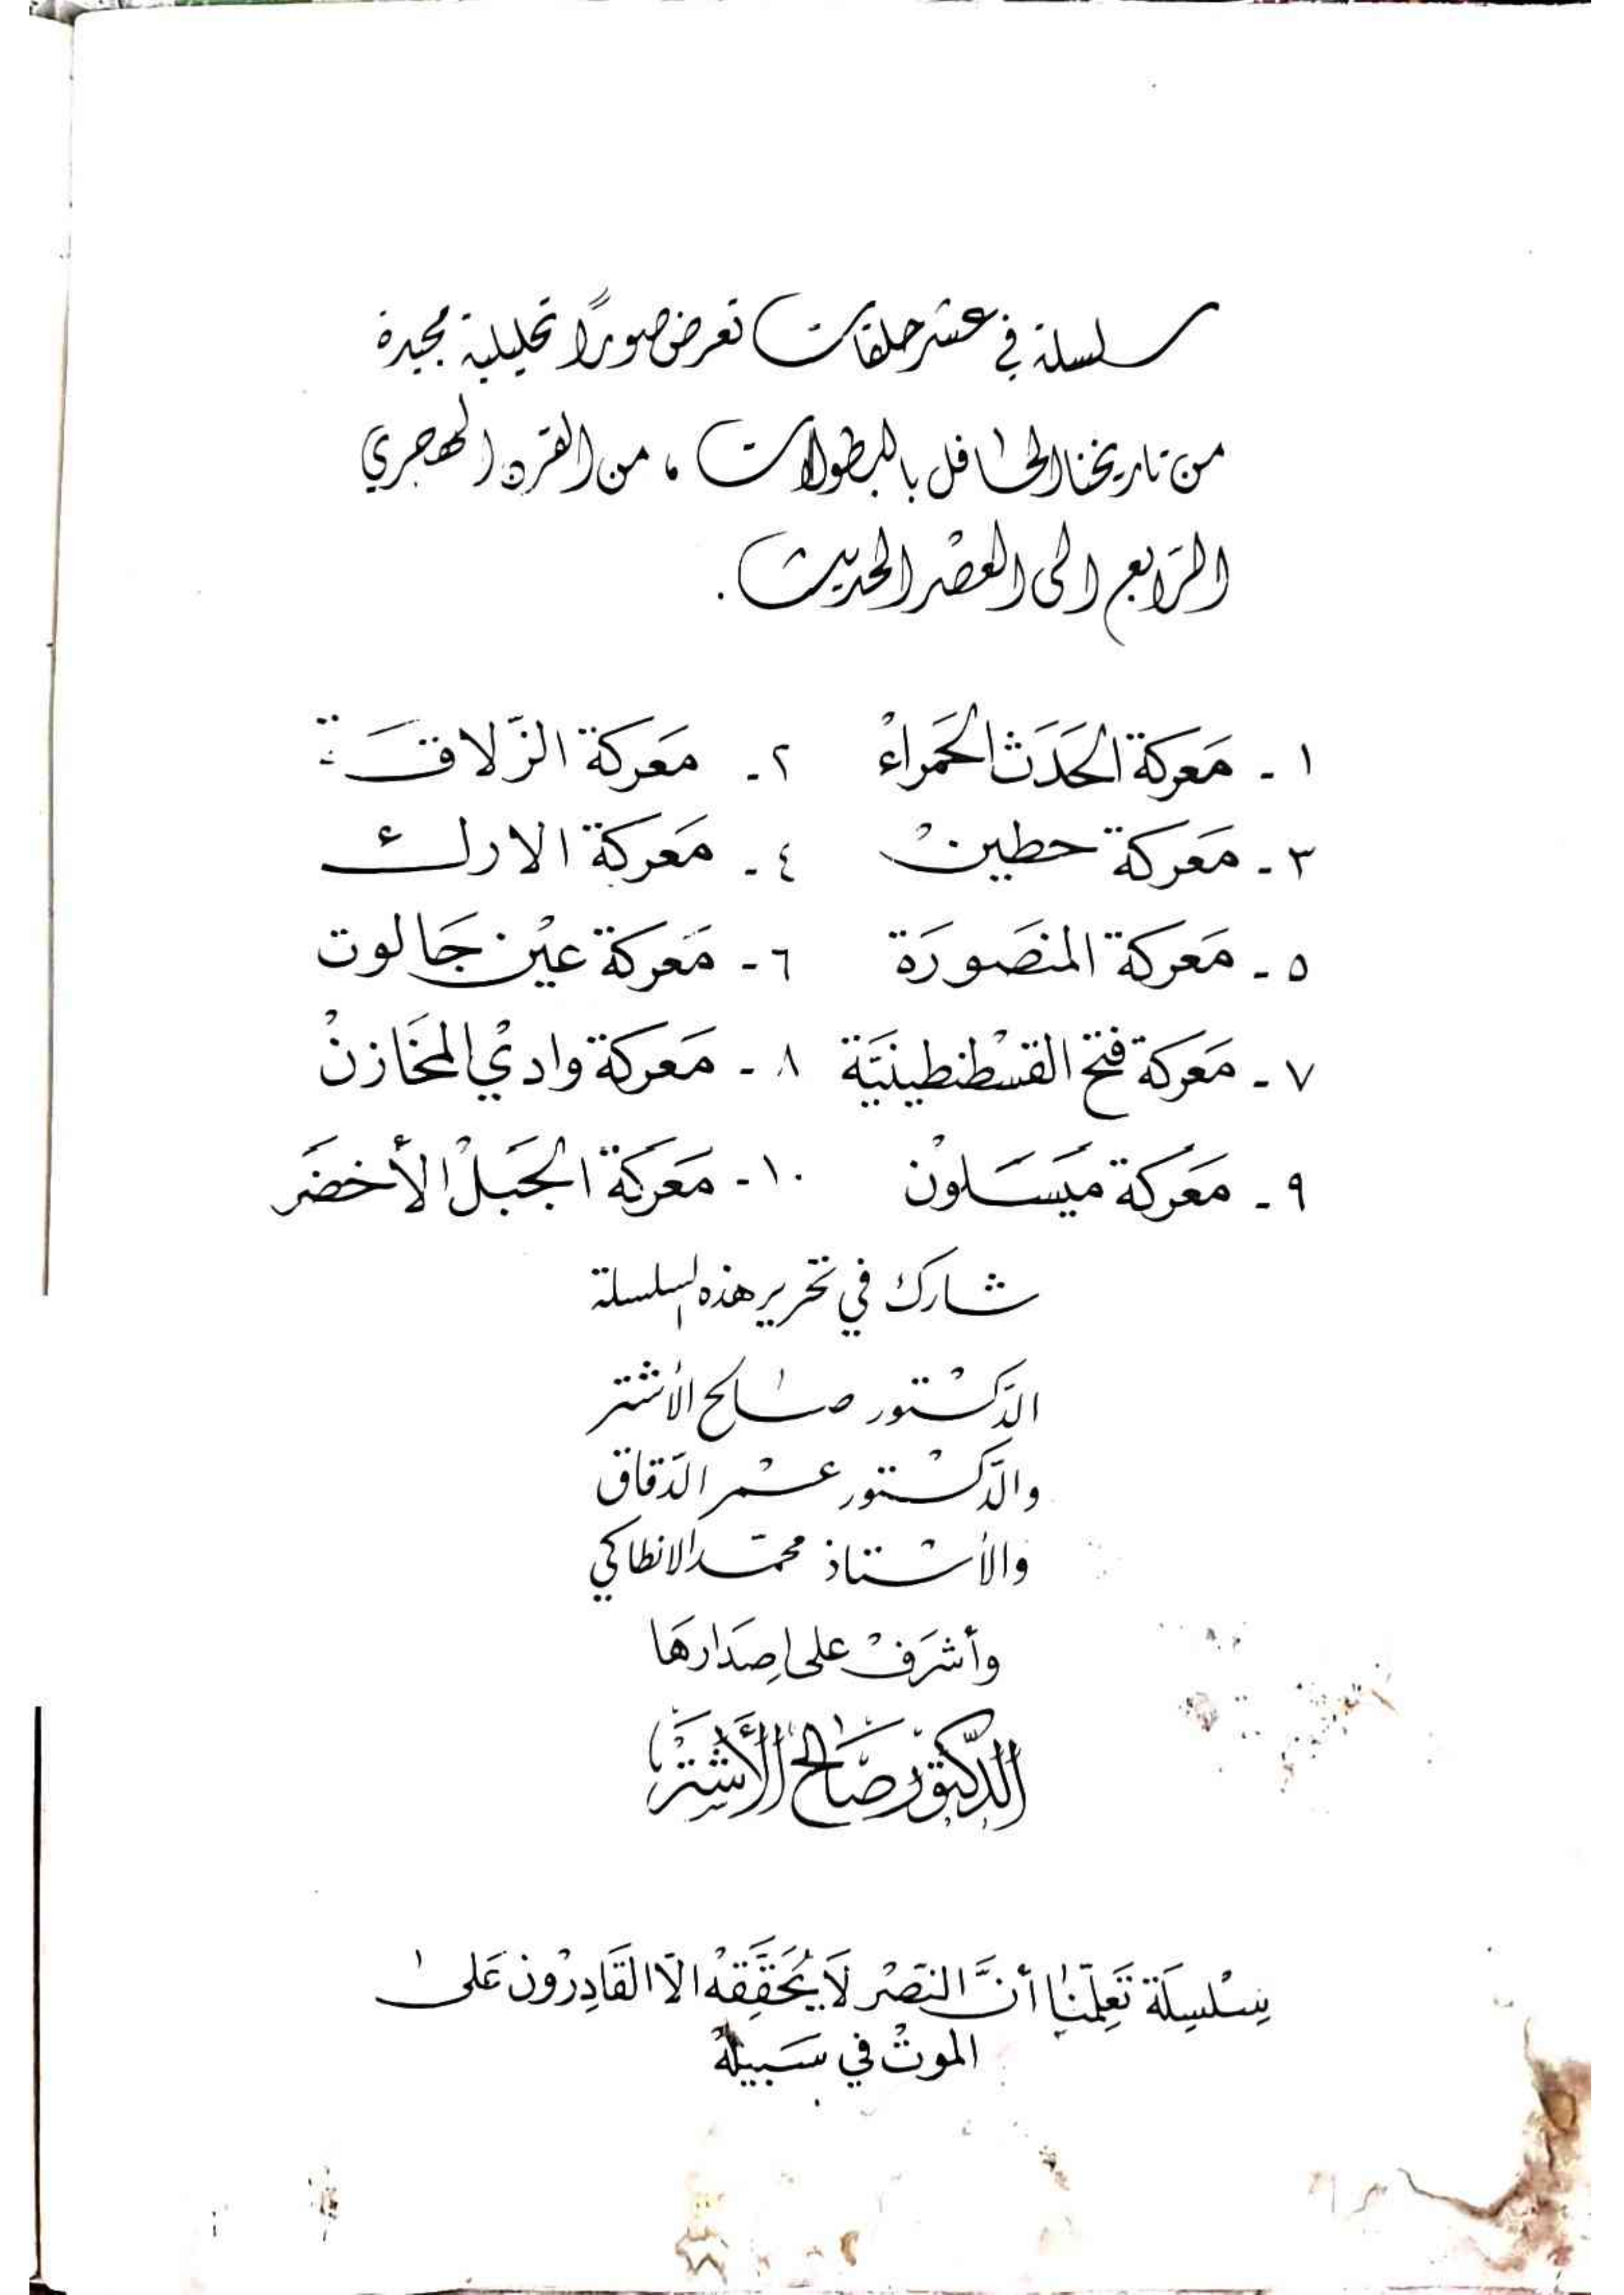 سلسلة في عشر حلقات تعرض صورًا تحليلية مجيدة
من تاريخنا الحافل بالبطولات ، من القرن الهجري
الرّابع الى العصْر الحديث .
١ - مَعركة الحَدَث الحَمراءْ ٢ - مَعركة الزّلاقَة
٣ - مَعركة حطينْ ٤ - مَعركة الارك
٥ - مَعركة المنصَورَة ٦ - مَعركة عيْن جَالوت
٧ - مَعركة فتح القسْطنطينيَّة ٨ - مَعركة وادْي المخَازنْ
٩ - مَعركة ميَسَلوْن ١٠ - مَعركَة الجَبَلْ الأخضَر
شارك في تحرير هذه السلسلة
الدَّكْتور صالح الأشتر
والدَّكْتور عمْر الدّقاق
والأسْتاذ محمّد الانطاكي
وأشرَفْ على اِصدَارهَا
الدّكتوْر صَالح الأَشْتَر
سِلْسِلَة تَعِلّمنا أنَّ النصْر لَا يُحَقَّقِهْ الّا القَادِرْون عَلى
الموتْ في سَبيلهْ